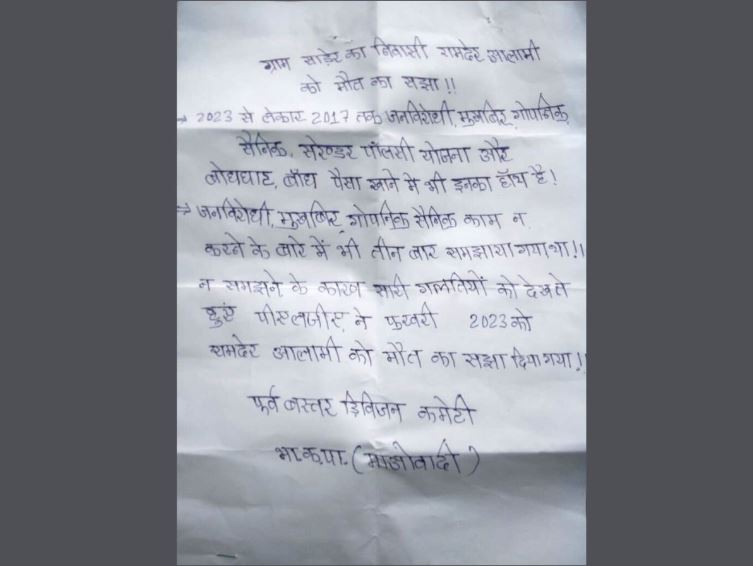 ग्राम साड़ेर का निवासी रामदेर आलामी
को मौत का सझा!!
→ 2023 से लेकार 2017 तक जनविरोधी, मुखबिर, गोपनिक
सैनिक, सरेण्डर पॉलसी योजना और
बोधघाट, बाँध पैसा खाने मे भी इनका हाँय है!
⇒ जनविरोधी, मुखबिर, गोपनिक सैनिक काम न
करने के बारे में भी तीन बार समझाया गया था!!
न समझने के कारण सारी गलतियों को देखते
हुए पीएलजीए ने फरवरी 2023 को
रामदेर आलामी को मौत का सझा दिया गया!!
पूर्व बस्तर डिविजन कमेटी
भा.क.पा. (माओवादी)